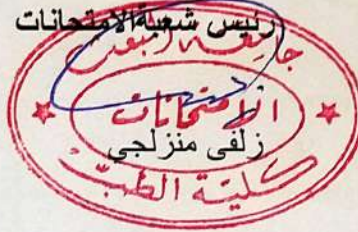 رئيس شعبة الامتحانات
جامعة البعث
الامتحانات
زلفى منزلجي
كلية الطب